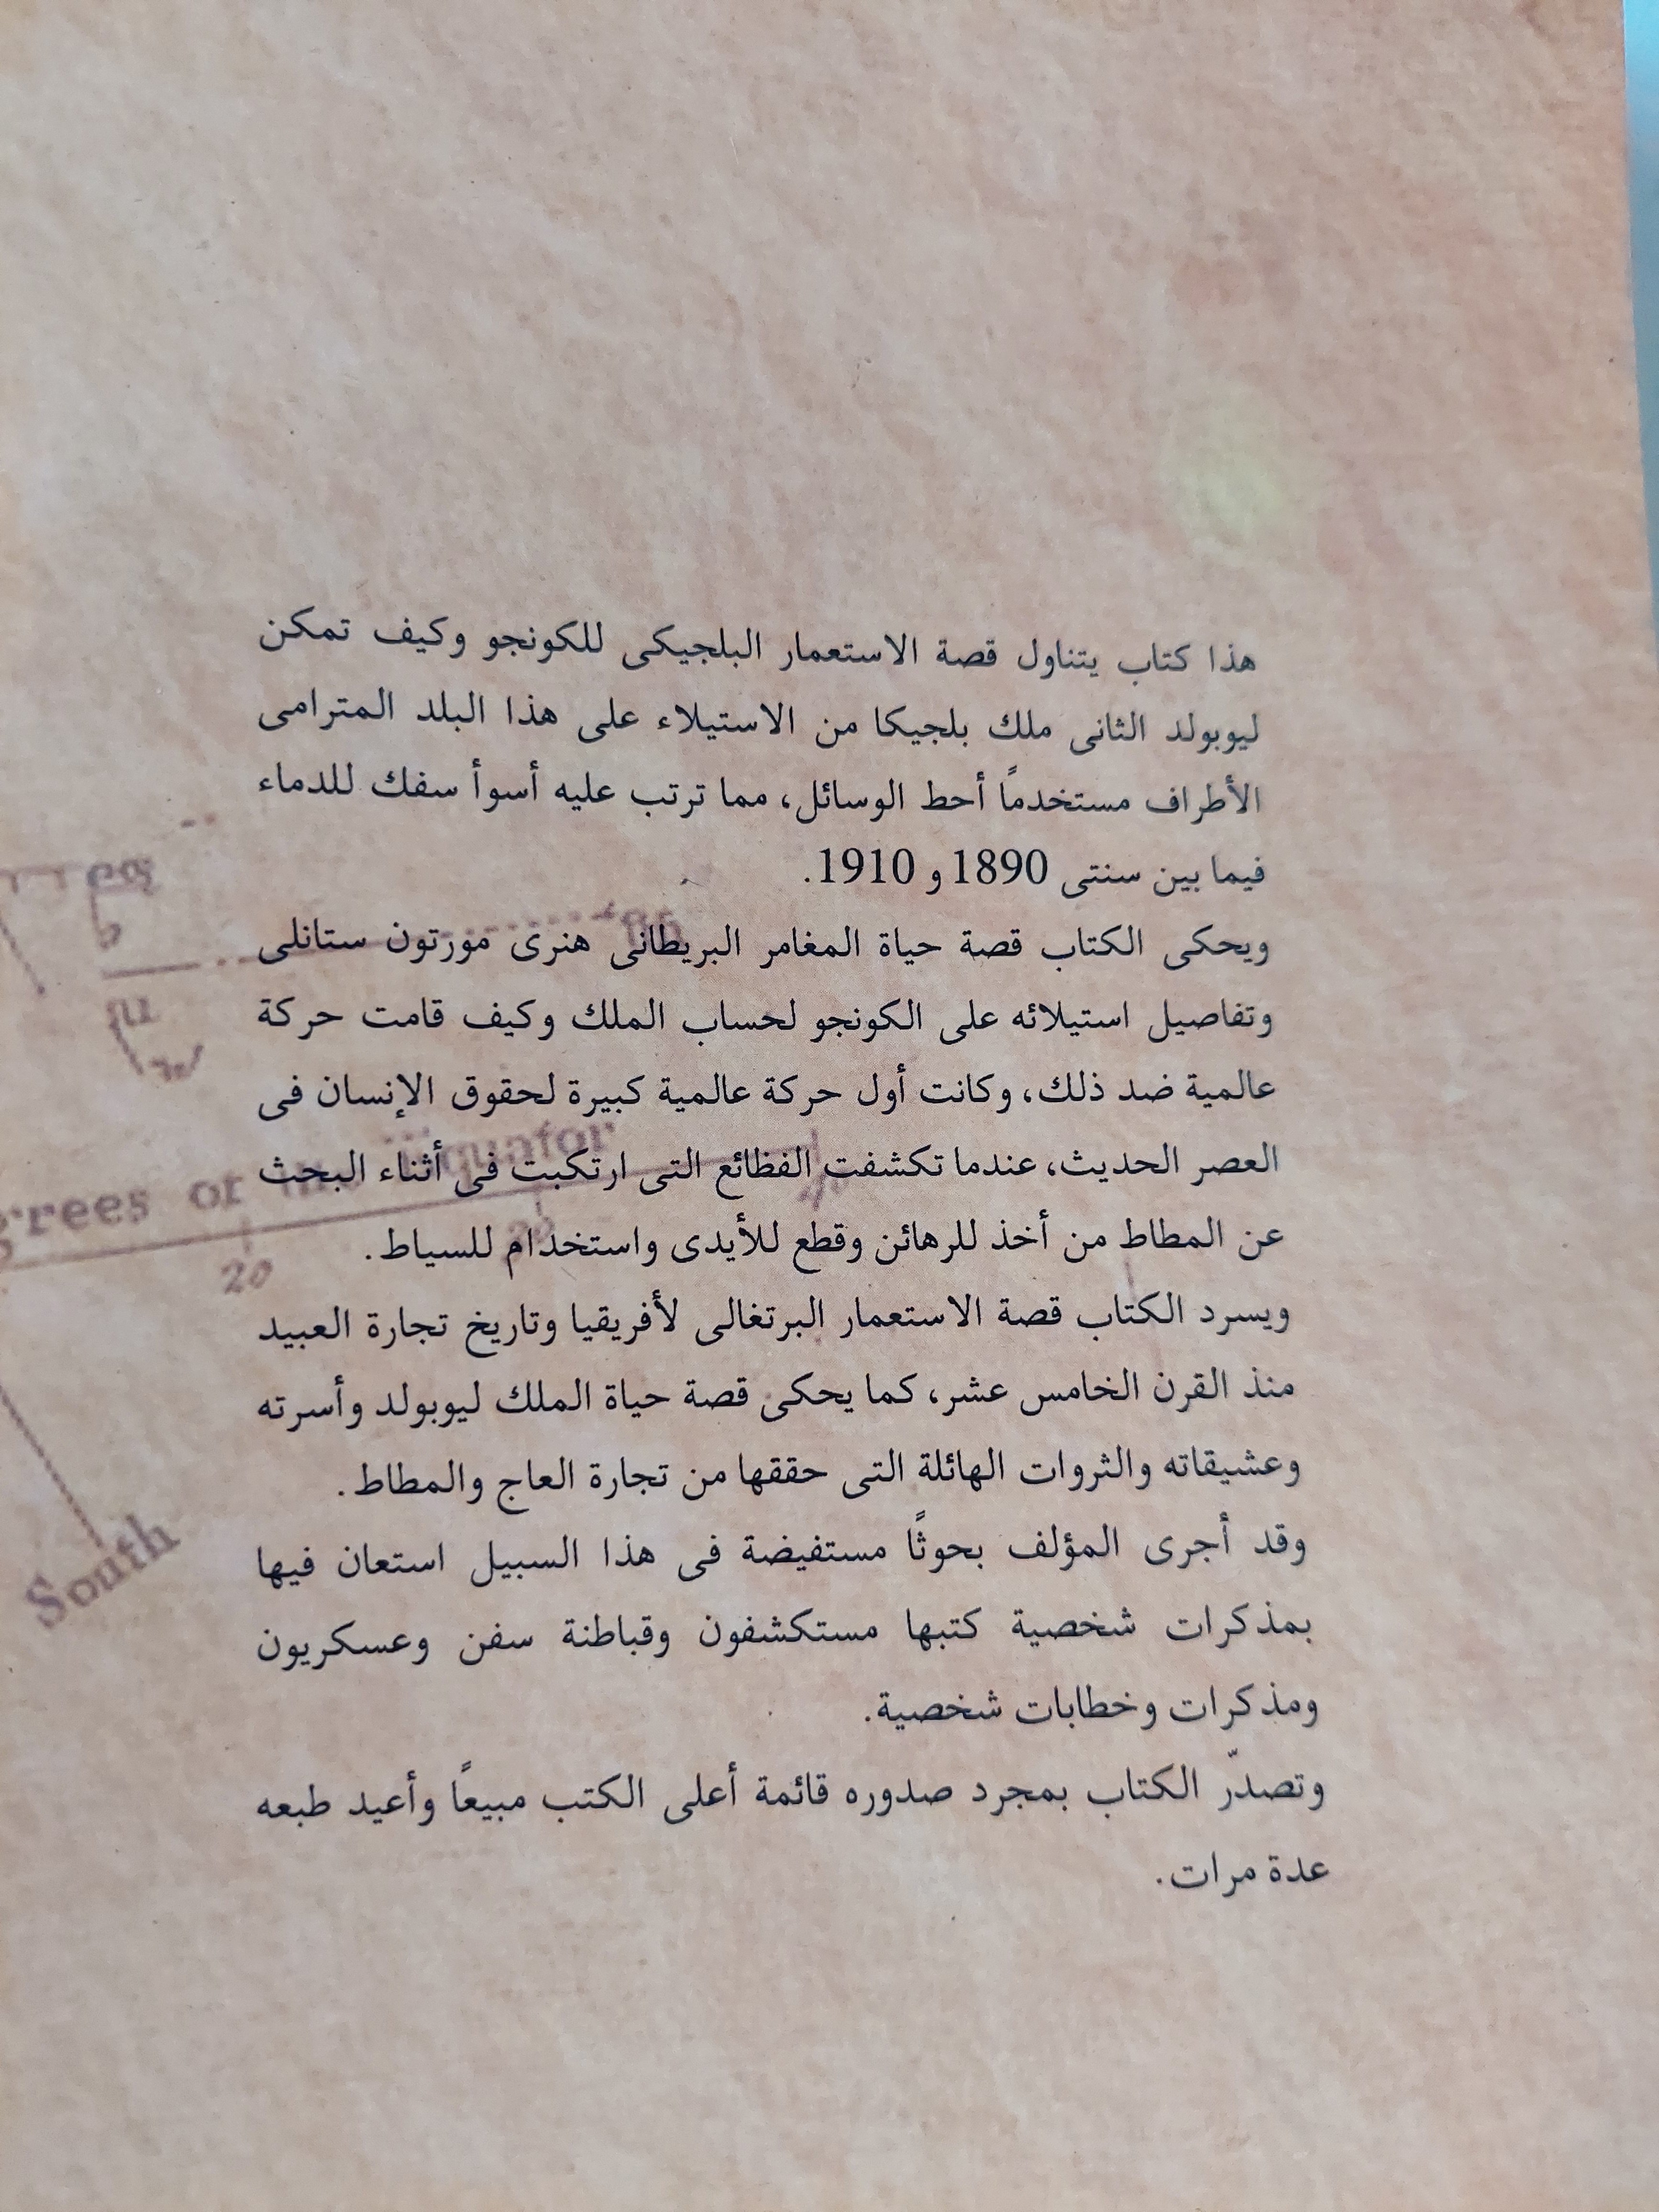 هذا كتاب يتناول قصة الاستعمار البلجيكى للكونجو وكيف تمكن
ليوبولد الثانى ملك بلجيكا من الاستيلاء على هذا البلد المترامى
الأطراف مستخدماً أحط الوسائل، مما ترتب عليه أسوأ سفك للدماء
فيما بين سنتى 1890 و 1910.
ويحكى الكتاب قصة حياة المغامر البريطانى هنرى مورتون ستانلى
وتفاصيل استيلائه على الكونجو لحساب الملك وكيف قامت حركة
عالمية ضد ذلك، وكانت أول حركة عالمية كبيرة لحقوق الإنسان فى
العصر الحديث، عندما تكشفت الفظائع التى ارتكبت فى أثناء البحث
عن المطاط من أخذ للرهائن وقطع للأيدى واستخدام للسياط.
ويسرد الكتاب قصة الاستعمار البرتغالى لأفريقيا وتاريخ تجارة العبيد
منذ القرن الخامس عشر، كما يحكى قصة حياة الملك ليوبولد وأسرته
وعشيقاته والثروات الهائلة التى حققها من تجارة العاج والمطاط.
وقد أجرى المؤلف بحوثًا مستفيضة فى هذا السبيل استعان فيها
بمذكرات شخصية كتبها مستكشفون وقباطنة سفن وعسكريون
ومذكرات وخطابات شخصية.
وتصدّر الكتاب بمجرد صدوره قائمة أعلى الكتب مبيعاً وأعيد طبعه
عدة مرات.
grees of
20
South